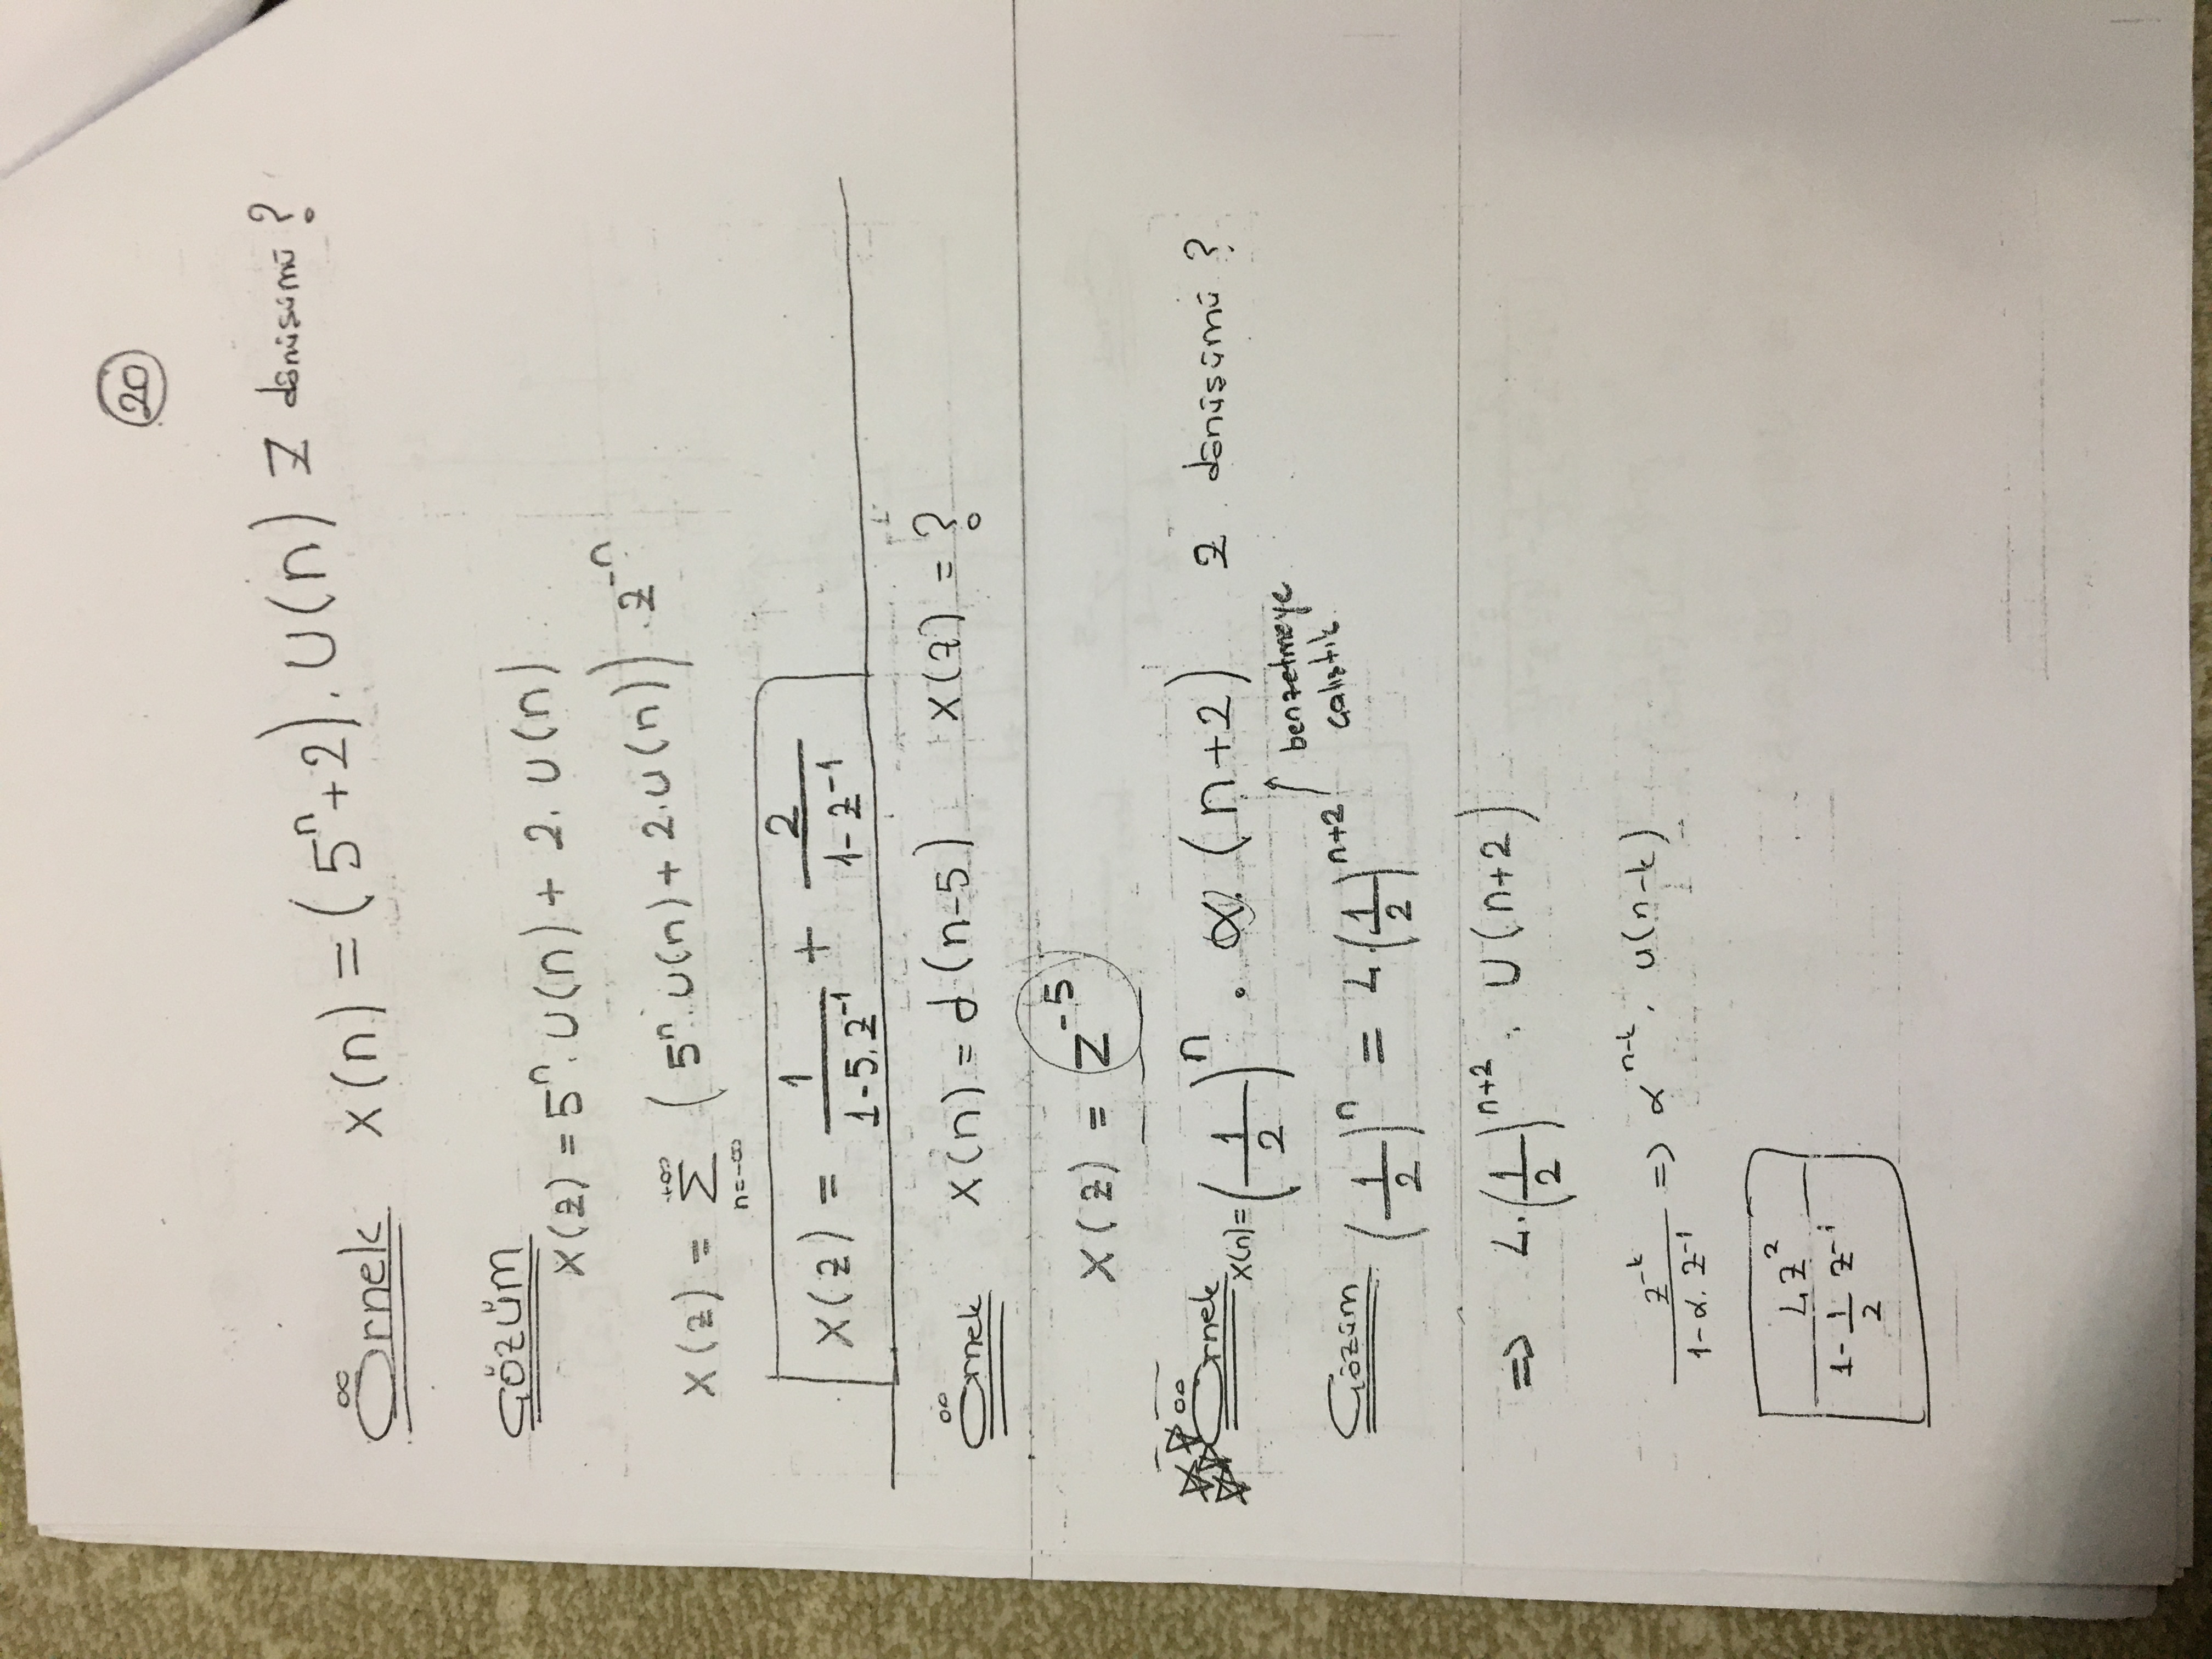 20
Örnek x(n) = (5ⁿ+2). U(n) Z dönüşümü ?
Çözüm
X(z) = 5ⁿ. U(n) + 2. U(n)
X(z) = +∞ Σ n=-∞ (5ⁿ. U(n) + 2. U(n)) . z⁻ⁿ
X(z) = 1/(1-5.z⁻¹) + 2/(1-z⁻¹)
Örnek x(n) = d(n-5) X(z) = ?
X(z) = z⁻⁵
Örnek x(n)= (1/2)ⁿ . α. (n+2) z dönüşümü ?
benzetmeye
çalıştık.
Çözüm (1/2)ⁿ = 4.(1/2)ⁿ⁺²
=> 4.(1/2)ⁿ⁺² . U(n+2)
z⁻ᵏ/(1-α. z⁻¹) => αⁿ⁻ᵏ . u(n-k)
4z²/(1-1/2 z⁻¹)